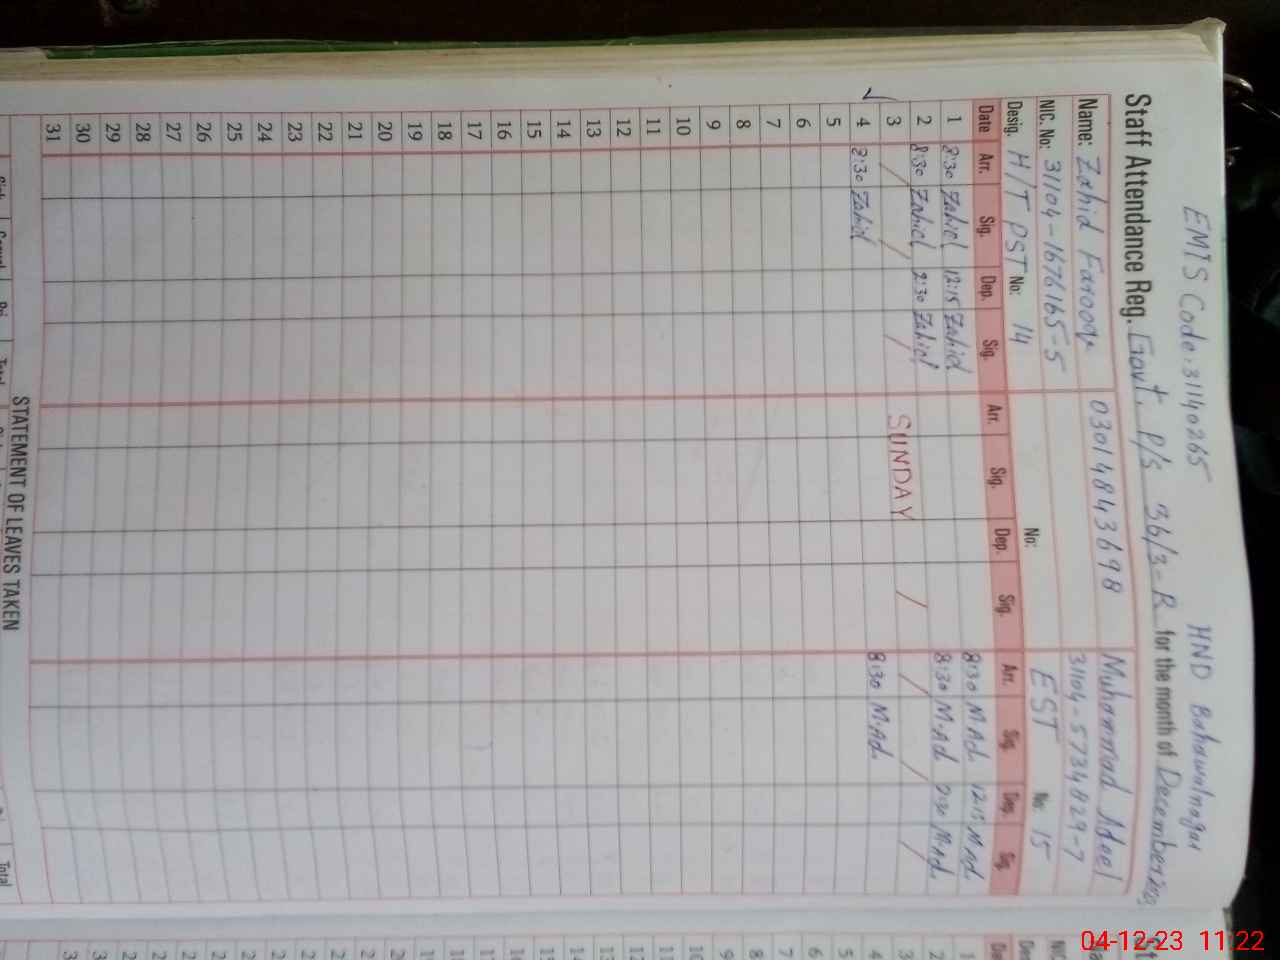 EMIS Code:31140265 HND Bahawalnagar
Staff Attendance Reg. Govt. P/S 36/3-R for the month of December 2023
Name: Zahid Farooq 03014843698 Muhammad Adeel
NIC. No: 31104-1676165-5 31104-5734829-7
Desig. H/T PST No: 14 No: EST No: 15
Date Arr. Sig. Dep. Sig. Arr. Sig. Dep. Sig. Arr. Sig. Dep. Sig.
1 8:30 Zahid 12:15 Zahid 8:30 M.Ad. 12:15 M.Ad.
2 8:30 Zahid 2:30 Zahid 8:30 M.Ad 2:30 M.Ad.
3 SUNDAY
4 8:30 Zahid 8:30 M.Ad.
5
6
7
8
9
10
11
12
13
14
15
16
17
18
19
20
21
22
23
24
25
26
27
28
29
30
31
STATEMENT OF LEAVES TAKEN
Total
04-12-23 11:22